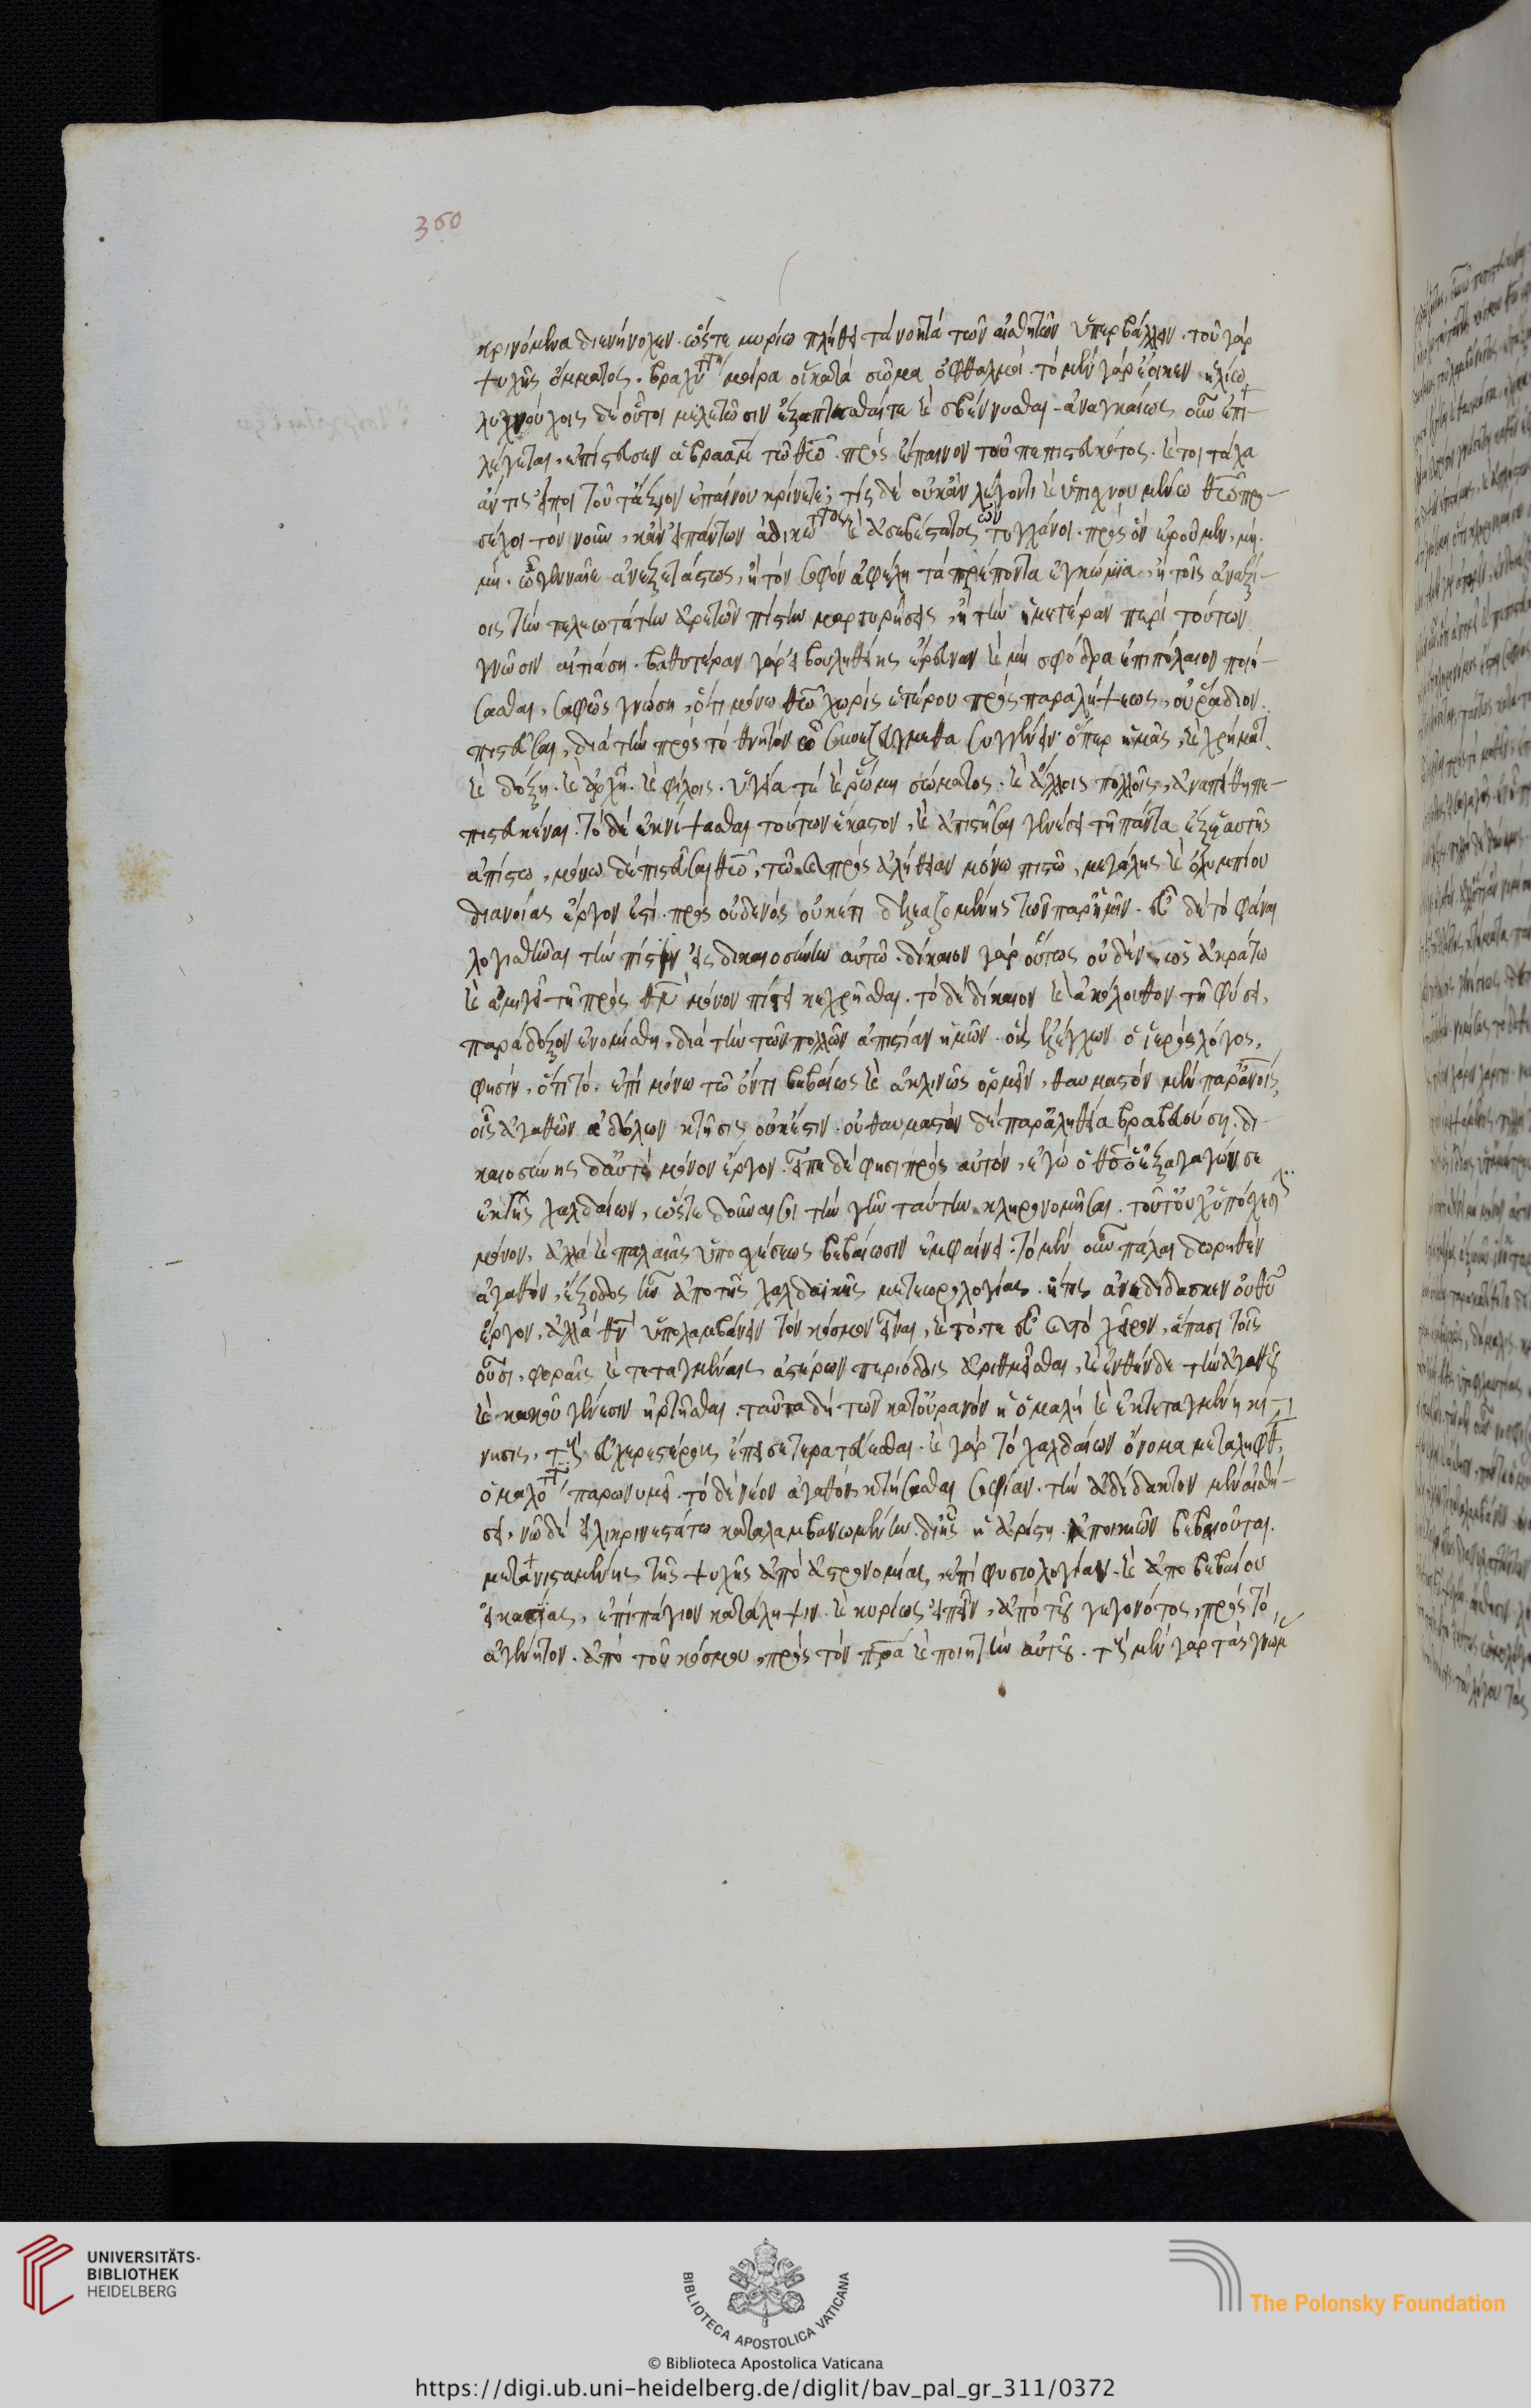 360
κρινόμενα διενήνοχεν. ὥστε μυρίω πλήθει τὰ νοητὰ τῶν αἰσθητῶν ὑπερβάλλειν. τοῦ γὰρ
ψυχῆς ὄμματος. βραχυτάτη μοίρα οἱ κατὰ σῶμα ὀφθαλμοί. τὸ μὲν γὰρ ἔοικεν ἡλίω
λυχνούχοις δὲ οὗτοι μελετῶσιν ἐξάπτεσθαί τε καὶ σβέννυσθαι. ἀναγκαίως οὖν ἐπι-
λέγεται, ἐπίστευσεν ἀβραὰμ τῶ θεῶ. πρὸς ἔπαινον τοῦ πεπιστευκότος. καίτοι τάχα
ἄν τις εἴποι τοῦτ' ἄξιον ἐπαίνου κρίνετε; τίς δὲ οὐκ ἂν λέγοντι καὶ ὑπισχνουμένω θεῶ προ-
σέχοι τὸν νοῦν, κἂν εἰ πάντων ἀδικώτατος καὶ ἀσεβέστατος ὢν τυγχάνοι. πρὸς ὃν ἐροῦμεν, μὴ.
μὴ. ὦ γενναῖε ἀνεξετάστως, ἢ τὸν σοφὸν ἀφέλη τὰ πρέποντα ἐγκώμια, ἢ τοῖς ἀναξί-
οις τὴν τελεωτάτην ἀρετῶν πίστιν μαρτυρήσεις, ἢ τὴν ἡμετέραν περὶ τούτων
γνῶσιν αἰτιάση. βαθυτέραν γὰρ εἰ βουληθείης ἔρευναν καὶ μὴ σφόδρα ἐπιπόλαιον ποιή-
σασθαι, σαφῶς γνώση, ὅτι μόνω θεῶ χωρὶς ἑτέρου προσπαραλήψεως, οὐ ῥάδιον
πιστεῦσαι, διὰ τὴν πρὸς τὸ θνητὸν ὧ συνεζεύγμεθα συγγένειαν. ὅπερ ἡμᾶς, καὶ χρήμασι
καὶ δόξη. καὶ ἀρχῆ. καὶ φίλοις. ὑγεία τὲ καὶ ῥώμη σώματος. καὶ ἄλλοις πολλοῖς, ἀναπείθει πε-
πιστευκέναι. τὸ δὲ ἐκνίψασθαι τούτων ἕκαστον, καὶ ἀπιστῆσαι γενέσει τῆ πάντα ἐξ ἑαυτῆς
ἀπίστω, μόνω δὲ πιστεῦσαι θεῶ, τῶ καὶ πρὸς ἀλήθειαν μόνω πιστῶ, μεγάλης καὶ ὀλυμπίου
διανοίας ἔργον ἐστί. πρὸς οὐδενὸς οὐκέτι δελεαζομένης τῶν παρ' ἡμῖν. εὖ δὲ τὸ φάναι
λογισθῆναι τὴν πίστιν εἰς δικαιοσύνην αὐτῶ. δίκαιον γὰρ οὕτως οὐδὲν, ὡς ἀκράτω
καὶ ἀμιγεῖ τῆ πρὸς θεὸν μόνον πίστει κεχρῆσθαι. τὸ δὲ δίκαιον καὶ ἀκόλουθον τῆ φύσει,
παράδοξον ἐνομίσθη, διὰ τὴν τῶν πολλῶν ἀπιστίαν ἡμῶν. οὓς ἐλέγχων ὁ ἱερὸς λόγος,
φησὶν, ὅτι τὸ. ἐπὶ μόνω τῶ ὄντι βεβαίως καὶ ἀκλινῶς ὁρμεῖν, θαυμαστὸν μὲν παρ' ἀνοις,
οἷς ἀγαθῶν ἀδόλων κτῆσις οὐκ ἔστιν. οὐ θαυμαστὸν δὲ παρ' ἀληθεία βραβευούση. δι-
καιοσύνης δ' αὐτὸ μόνον ἔργον. εἶπε δέ φησι πρὸς αὐτόν, ἐγὼ ὁ θς ὁ ἐξαγαγών σε
ἐκ γῆς χαλδαίων, ὥστε δοῦναί σοι τὴν γῆν ταύτην κληρονομῆσαι. τοῦτ' οὐχ ὑπόσχεσιν
μόνον, ἀλλὰ καὶ παλαιᾶς ὑποσχέσεως βεβαίωσιν ἐμφαίνει. τὸ μὲν οὖν πάλαι δωρηθὲν
ἀγαθόν, ἔξοδος ἦν ἀπὸ τῆς χαλδαϊκῆς μετεωρολογίας. ἥτις ἀνεδίδασκεν οὐ θῦ
ἔργον, ἀλλὰ θν ὑπολαμβάνειν τὸν κόσμον εἶναι, καὶ τό, τε εὖ καὶ τὸ χεῖρον, ἅπασι τοῖς
οὖσι, φοραῖς καὶ τεταγμέναις ἀστέρων περιόδοις ἀριθμεῖσθαι, καὶ ἐνθένδε τὴν ἀγαθοῦ
καὶ κακοῦ γένεσιν ἠρτῆσθαι. ταῦτα δὴ τῶν κατ' οὐρανὸν ἡ ὁμαλὴ καὶ ἐκτεταγμένη κί-
νησις, τοῖς εὐχερεστέροις ἔπεισε τερατεύεσθαι. καὶ γὰρ τὸ χαλδαίων ὄνομα μεταληφθὲν,
ὁμαλότητι παρωνυμεῖ. τὸ δὲ νέον ἀγαθὸν, κτήσασθαι σοφίαν. τὴν ἀδίδακτον μὲν αἰσθή-
σει, νῶ δὲ εἰλικρινεστάτω καταλαμβανομένην. δι' ἧς ἡ ἀρίστη ἀποικιῶν βεβαιοῦται.
μετανισταμένης τῆς ψυχῆς ἀπὸ ἀστρονομίας, ἐπὶ φυσιολογίαν. καὶ ἀπὸ βεβαίου
εἰκασίας, ἐπὶ πάγιον κατάληψιν. καὶ κυρίως εἰπεῖν, ἀπὸ τοῦ γεγονότος, πρὸς τὸ
ἀγένητον. ἀπὸ τοῦ κόσμου, πρὸς τὸν πρα καὶ ποιητὴν αὐτοῦ. τοὺς μὲν γὰρ τὰς γνώμας
UNIVERSITÄTS-
BIBLIOTHEK
HEIDELBERG
BIBLIOTECA APOSTOLICA VATICANA
The Polonsky Foundation
© Biblioteca Apostolica Vaticana
https://digi.ub.uni-heidelberg.de/diglit/bav_pal_gr_311/0372